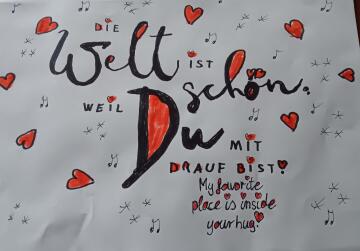 DIE
Welt IST
schön.
WEIL
Du MIT
DRAUF BIST!
My favorite
place is inside
your hug!